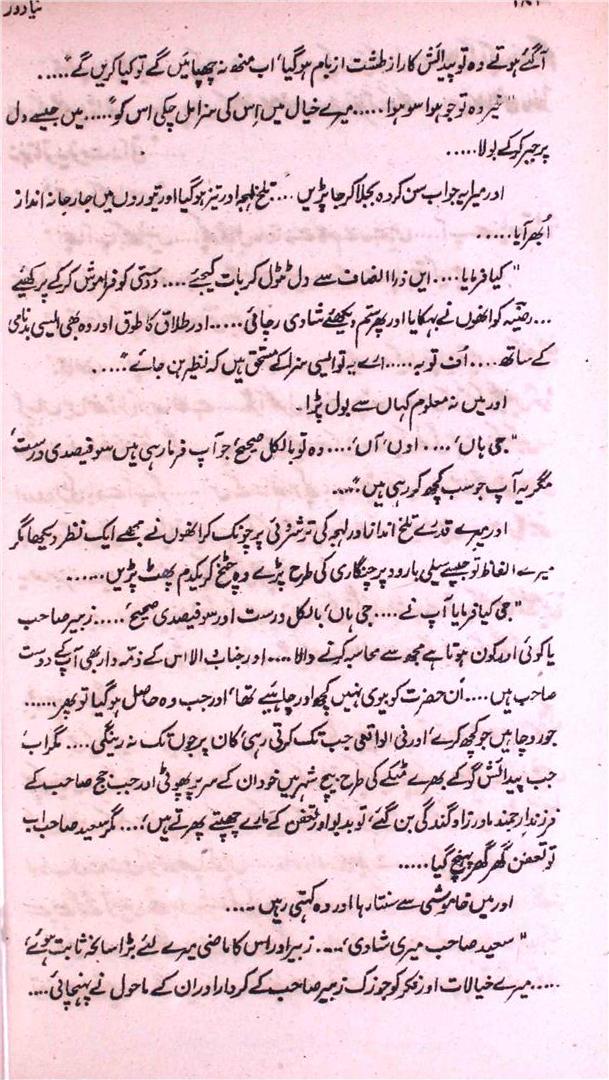 نیا دور
آگئے ہوتے وہ تو پیدائش کا راز طشت از بام ہوگیا، اب منھ نہ چھپائیں گے تو کیا کریں گے"۔....
"خیر وہ تو جو ہوا سو ہوا..... میرے خیال میں اِس کی سزا مل چکی اس کو"..... میں جیسے دل
پر جبر کرکے بولا.....
اور میرا یہ جواب سن کر وہ بجلا کر جا پڑیں .... تلخ لہجہ اور تیز ہوگیا اور تیوروں میں جارحانہ انداز
اُبھر آیا.....
"کیا فرمایا.... ایں ذرا انصاف سے دل ٹٹول کر بات کیجئے.... دوستی کو فراموش کرکے پرکھیئے
... رضیہ کو انھوں نے بہکایا اور پھر ستم دیکھئے شادی رچائی..... اور طلاق کا طوق اور وہ بھی ایسی بدنامی
کے ساتھ.... اُف توبہ..... اے یہ تو ایسی سزا کے مستحق ہیں کہ نظیر بن جائے"۔....
اور میں نہ معلوم کہاں سے بول پڑا۔
"جی ہاں'.... اوں' آں'.... وہ تو بالکل صحیح' جو آپ فرما رہی ہیں سو فیصدی درست'
مگر یہ آپ جو سب کچھ کہہ رہی ہیں"....
اور میرے قدرے تلخ انداز اور لہجہ کی ترشرائی پر چونک کر انھوں نے مجھے ایک نظر دیکھا مگر
میرے الفاظ تو جیسے سلی بارود پر چنگاری کی طرح پڑے وہ چٹخ کر یکدم پھٹ پڑیں......
"جی کیا فرمایا آپ نے.... جی ہاں' بالکل درست اور سو فیصدی صحیح'..... زبیر صاحب
یا کوئی اور کون ہوتا ہے مجھ سے محاسبہ کرنے والا.... اور جنابِ والا اس کے ذمّہ دار بھی آپ کے دوست
صاحب ہیں.... اُن حضرت کو بیوی نہیں کچھ اور چاہیئے تھا' اور جب وہ حاصل ہوگیا تو پھر......
جورو چاہیں جو کچھ کرے' اور فی الواقعی جب تک کرتی رہی' کان پر جوں تک نہ رینگی.... مگر اب
جب پیدائش گُو کے بھرے مٹکے کی طرح بیچ شہر میں خود ان کے سر پر پھوٹی اور جب جج صاحب کے
فرزندِ ارجمند مادر زاد گندگی بن گئے' تو بدبو اور تعفن کے مارے چھپتے پھرتے ہیں'.... مگر سعید صاحب اب
تو تعفن گھر گھر پہنچ گیا.....
اور میں خاموشی سے سنتا رہا اور وہ کہتی رہیں ....
"سعید صاحب میری شادی'.... زبیر اور اس کا ماضی میرے لئے بڑا سانحہ ثابت ہوئے'
..... میرے خیالات اور فکر کو جو زک زبیر صاحب کے کردار اور ان کے ماحول نے پہنچائی....